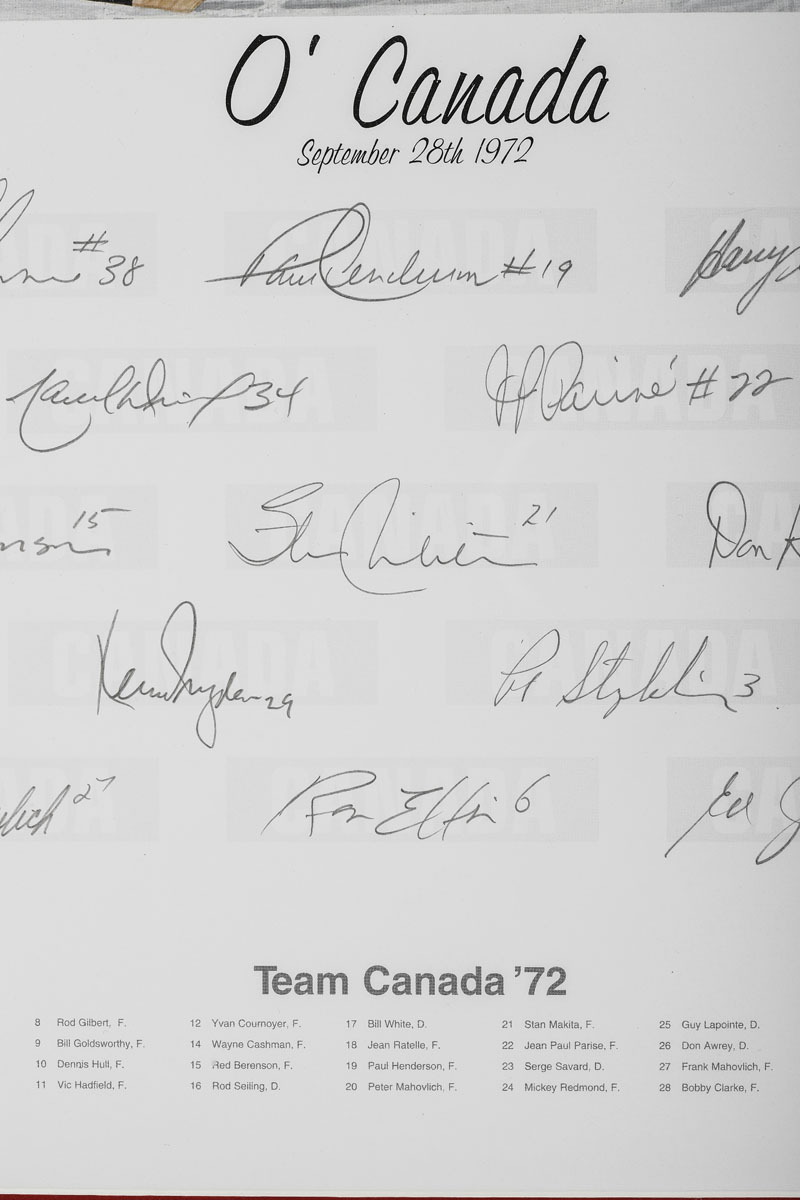 O' Canada
September 28th 1972
#38 Paul Henderson #19 Harry
34 JP Parisé #22
15 21 Don
29 3
27 Ron Ellis 6 Ed
Team Canada '72
8 Rod Gilbert, F. 12 Yvan Cournoyer, F. 17 Bill White, D. 21 Stan Makita, F. 25 Guy Lapointe, D.
9 Bill Goldsworthy, F. 14 Wayne Cashman, F. 18 Jean Ratelle, F. 22 Jean Paul Parise, F. 26 Don Awrey, D.
10 Dennis Hull, F. 15 Red Berenson, F. 19 Paul Henderson, F. 23 Serge Savard, D. 27 Frank Mahovlich, F.
11 Vic Hadfield, F. 16 Rod Seiling, D. 20 Peter Mahovlich, F. 24 Mickey Redmond, F. 28 Bobby Clarke, F.